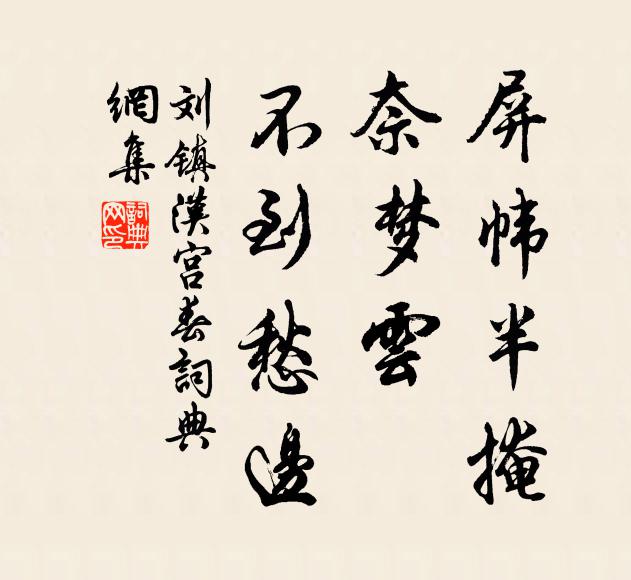 屏帏半掩
奈梦雲
不到愁邊
刘镇漢宫春詞典
網集
詞典
网印